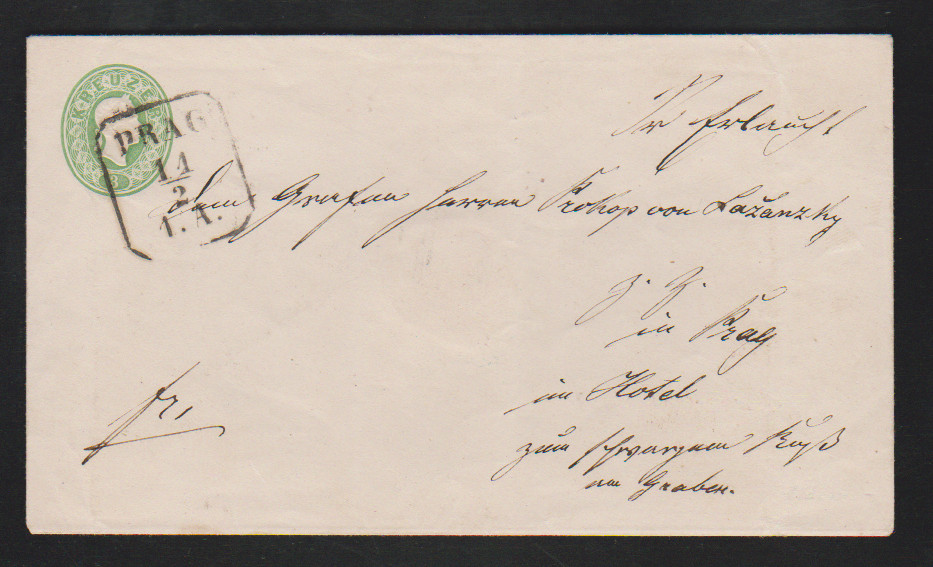 KREUZER
3
PRAG
11
2
1. A.
Sr Erlaucht
dem Grafen Herren Prokop von Lažanzky
z. Z.
in Prag
im Hotel
zum schwarzem Roß
am Graben.
fr,